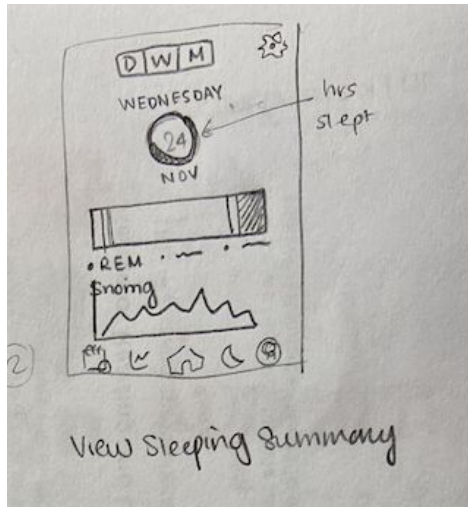 D W M
WEDNESDAY
hrs
slept
24
NOV
• REM
Snoing
2
View Sleeping Summary